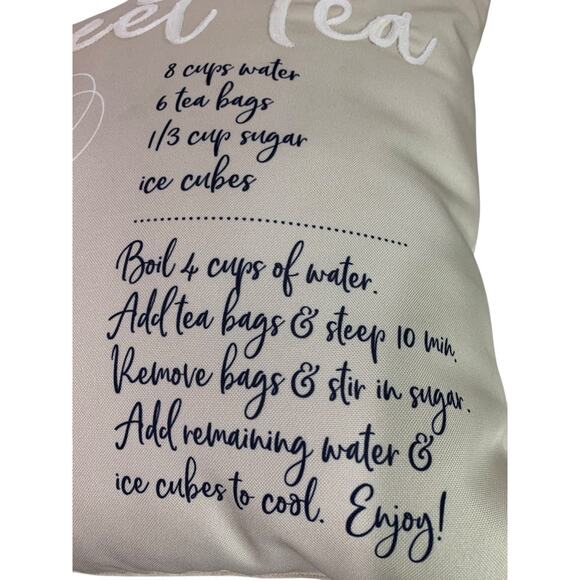 eet Tea
8 cups water
6 tea bags
1/3 cup sugar
ice cubes
Boil 4 cups of water.
Add tea bags & steep 10 min.
Remove bags & stir in sugar.
Add remaining water &
ice cubes to cool. Enjoy!